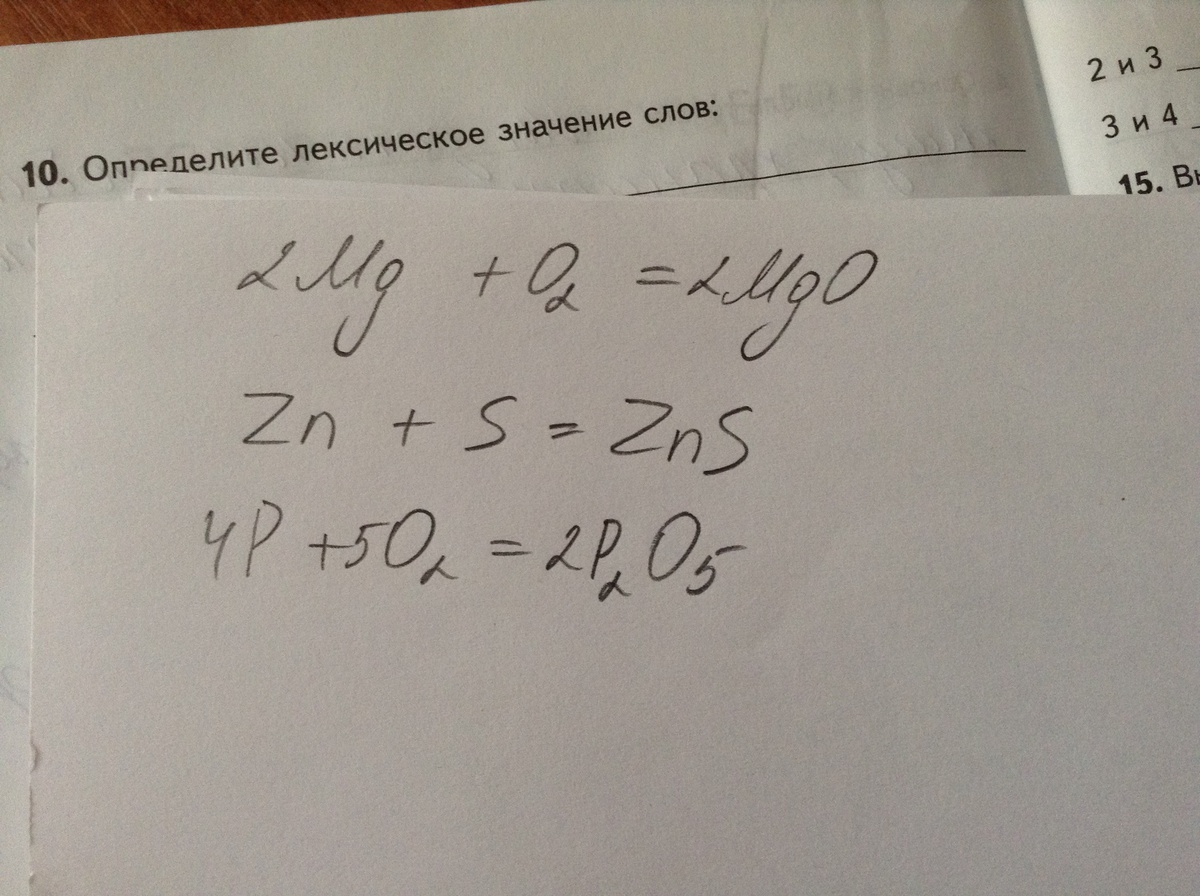 10. Определите лексическое значение слов:
2 и 3
3 и 4
15.
2Mg + O₂ = 2MgO
Zn + S = ZnS
4P + 5O₂ = 2P₂O₅